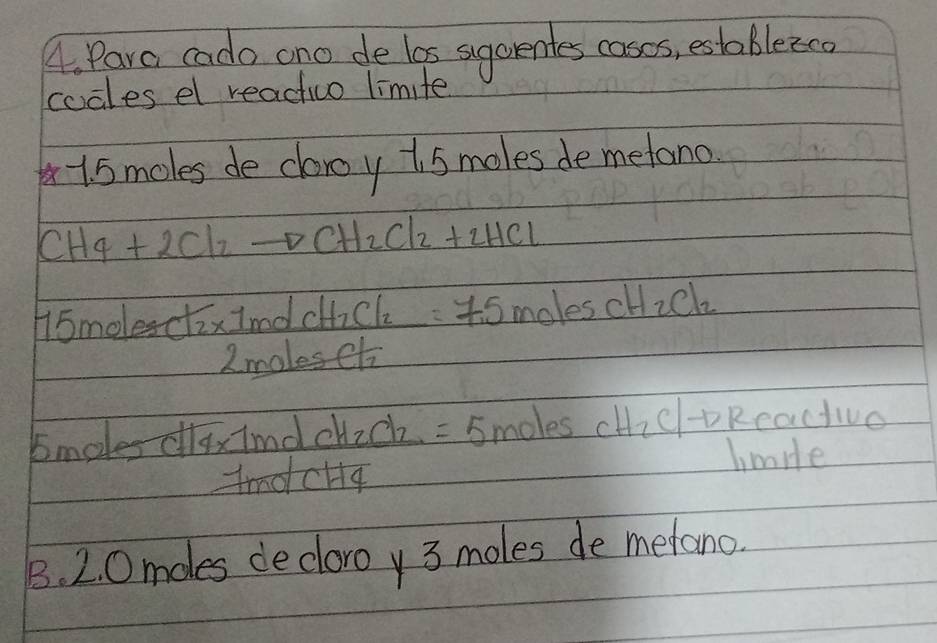 4. Para cado ono de los sigoientes casos, establezco
cuáles el reactivo límite
* 1.5 moles de cloro y 1.5 moles de metano.
CH4 + 2Cl2 → CH2Cl2 + 2HCl
15 moles Cl2 x 1mol CH2Cl2 = 7.5 moles CH2Cl2
2 moles Cl2
5 moles CH4 x 1mol CH2Cl2 = 5 moles CH2Cl → Reactivo
limite
1mol CH4
B. 2.0 moles de cloro y 3 moles de metano.